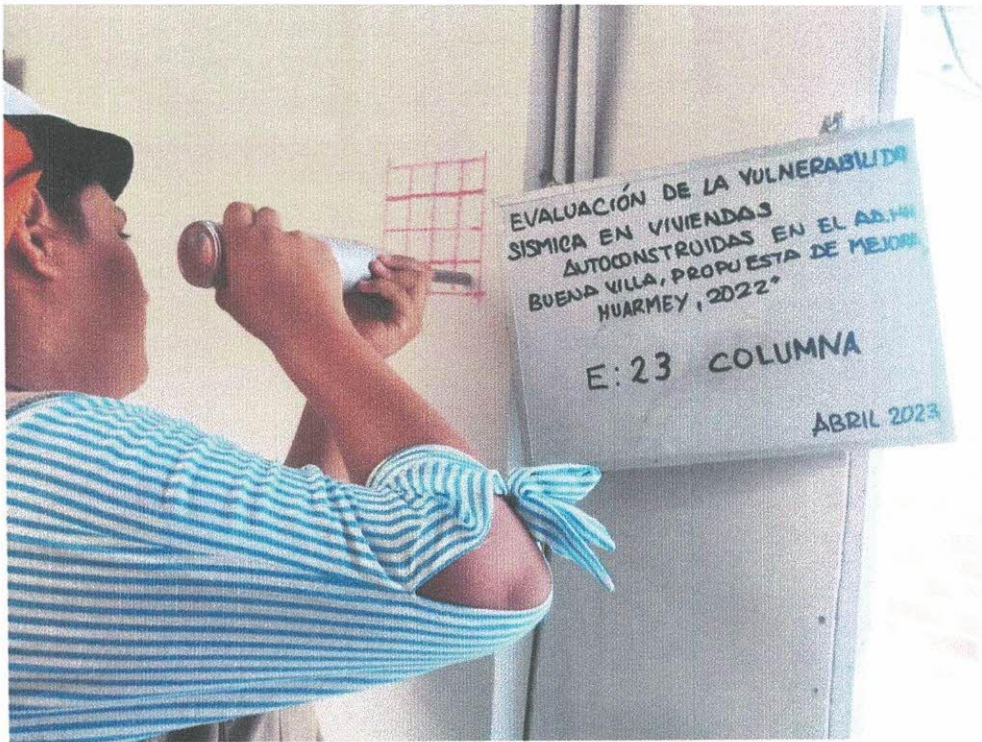 EVALUACIÓN DE LA VULNERABILIDA
SISMICA EN VIVIENDAS
AUTOCONSTRUIDAS EN EL AA.HH
BUENA VILLA, PROPUESTA DE MEJORA
HUARMEY, 2022"
E: 23 COLUMNA
ABRIL 2023